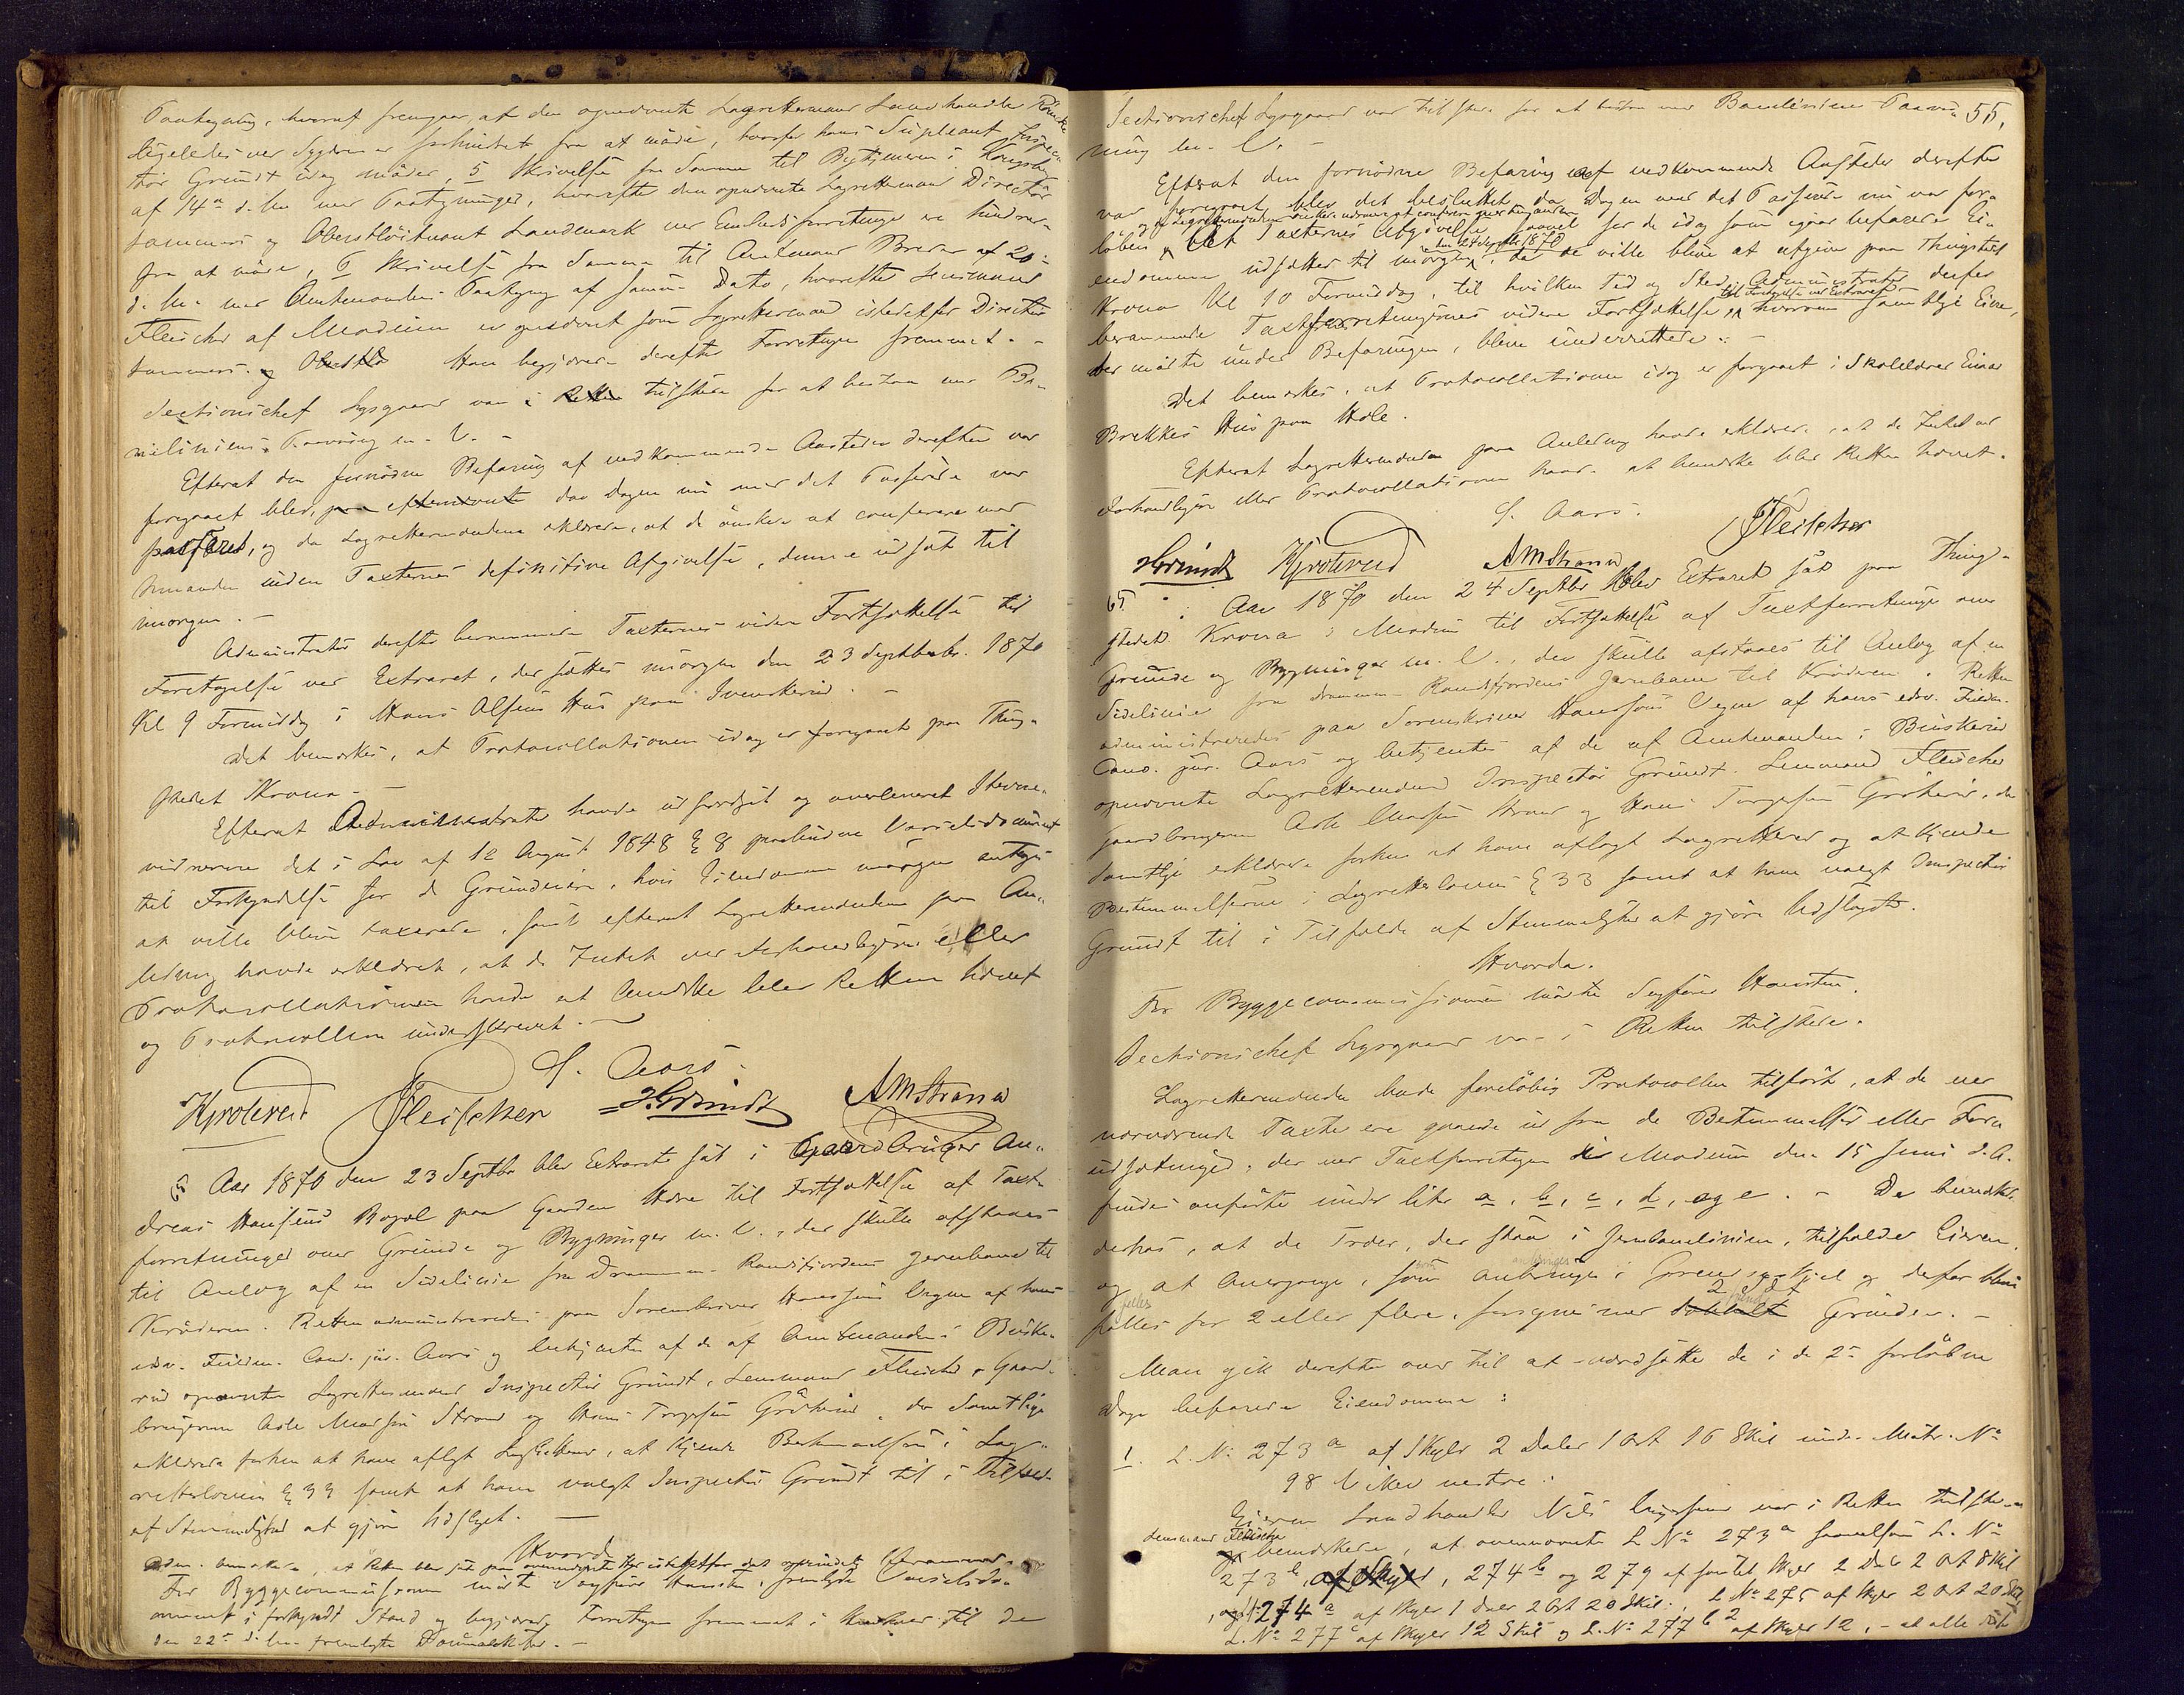 Paategning, hvoraf fremgaar, at den opnævnte Lagrettemand Landhandler
ligeledes ved Sygdom er forhindret fra at møde, hvorfor hans Supleant Inspec-
tør Grundt idag møder, 5 Skrivelse fra Samme til Byfogden i Kongsberg
af 14de d. M. med Paategninger, hvorefter den opnævnte Lagrettemand Directør
Sammers og Oberstløitnant Landmark ved Embedsforretninger ere hindrede
fra at møde, 6 Skrivelse fra Samme til Amtmand Breder af 20de
d. M. med Amtmandens Paategning af samme Dato, hvorefter Lensmand
Fleischer af Modum er opnævnt som Lagrettemand istedetfor Directør
Sammers. Han begjærede derefter Forretningen fremmet. -
Sectionschef Lysgaard var i Retten tilstede for at bistaa med Ba-
neliniens Paavisning m. V. -
Efterat den fornødne Befaring af vedkommende Aasteder derefter var
foregaaet blev, da Dagen nu med det Passerede var
passeret, og da Lagrettemændene erklærede, at de ønskede at conferere med
hinanden inden Taxternes definitive Afgivelse, denne udsat til
imorgen. -
Administrator derefter berammede Taxternes videre Fortsættelse til
Foretagelse ved Extraret, der sættes imorgen den 23 Septbr. 1870
Kl 9 Formiddag i Hans Olsens Hus paa Ivenskerud. -
Det bemærkes, at Protocollationen idag er foregaaet paa Thing-
stedet Krona. -
Efterat Administrator havde udfærdiget og overleveret Stevne-
vidnerne det i Lov af 12 August 1848 § 8 paabudne Varselsdocument
til Forkyndelse for de Grundeiere, hvis Eiendomme imorgen antages
at ville blive taxerede, samt efterat Lagrettemændene paa An-
ledning havde erklæret, at de Intet ved Forhandlingerne eller
Protocollationen havde at bemærke blev Retten hævet
og Protocollen underskrevet. -
S. Aars.
HGrøterud Fleischer Grundt AMStrand
Aar 1870 den 23 Septbr blev Extraret sat i Gaardbruger An-
dreas Hansens Bopæl paa Gaarden Hære til Fortsættelse af Taxt-
forretninger over Grunde og Bygninger m. V., der skulle afstaaes
til Anlæg af en Sidelinie fra Drammen-Randsfjordens Jernbane til
Krøderen. Retten administreredes paa Sorenskriver Hanssens Vegne af hans
edsv. Fuldm. Cand. jur. Aars og betjentes af de af Amtmanden i Buske-
rud opnævnte Lagrettemænd Inspectør Grundt, Lensmand Fleischer, Gaard-
brugerne Asle Madsen Strand og Hans Torgersen Grøterud, der Samtlige
erklærede forhen at have aflagt Lagretteed, at kjende Bestemmelserne i Lag-
rettelovens § 33 samt at have valgt Inspectør Grundt til i Tilfælde
af Stemmelighed at gjøre Udslaget. -
Hvorda
Adm. bemærkede, at Retten blev sat paa ovennævnte Sted istedetfor det oprindelig berammede.
For Byggecommissionen mødte Sagfører Hansteen, fremlagde Varselsdo-
cument i forkyndt Stand og begjærede Forretningen fremmet i Henhold til de
den 22de d. M. fremlagte Documenter. -
55.
Sectionschef Lysgaard var tilstede for at bistaa med Baneliniens Paavis-
ning m. V. -
Efterat den fornødne Befaring af vedkommende Aasteder derefter
var foregaaet, blev det besluttet da Dagen med det Passerede nu var for-
og Lagrettemændene ønskede nærmere at conferere med hinanden
løben, at Taxternes Afgivelse saavel for de idag som igaar befarede Ei-
den 24 Septbr 1870
endomme udsættes til imorgen, da de ville blive at afgive paa Thingstedet
Krona Kl 10 Formiddag, til hvilken Tid og Sted Administrator derfor
til Foretagelse ved Extraret
berammede Taxtforretningernes videre Fortsættelse, hvorom samtlige Eiere,
der mødte under Befaringen, bleve underrettede. -
Det bemærkes, at Protocollationen idag er foregaaet i Skolelærer Einar
Brekkes Hus paa Hole.
Efterat Lagrettemændene paa Anledning havde erklæret, at de Intet ved
Forhandlingen eller Protocollationen havde at bemærke blev Retten hævet.
S. Aars.
Grundt HGrøterud AMStrand Fleischer
Aar 1870 den 24 Septbr blev Extraret sat paa Thing-
stedet Krona i Modum til Fortsættelse af Taxtforretninger over
Grunde og Bygninger m. V., der skulle afstaaes til Anlæg af en
Sidelinie fra Drammen-Randsfjordens Jernbane til Krøderen. Retten
administreredes paa Sorenskriver Hanssens Vegne af hans edsv. Fuldm.
Cand. jur. Aars og betjentes af de af Amtmanden i Buskerud
opnævnte Lagrettemænd Inspectør Grundt, Lensmand Fleischer
Gaardbrugerne Asle Madsen Strand og Hans Torgersen Grøterud, der
Samtlige erklærede forhen at have aflagt Lagretteed og at kjende
Bestemmelserne i Lagrettelovens § 33 samt at have valgt Inspectør
Grundt til i Tilfælde af Stemmelighed at gjøre Udslaget.
Hvorda.
For Byggecommissionen mødte Sagfører Hansteen.
Sectionschef Lysgaard var i Retten tilstede.
Lagrettemændene lode foreløbig Protocollen tilføre, at de ved
nærværende Taxter ere gaaede ud fra de Bestemmelser eller Foru-
udsætninger, der ved Taxtforretningen i Modum den 15 Juni d. A.
findes anførte under litr a, b, c, d, og e. - De bemærke
derhos, at de Træer, der staa i Jernbanelinien, tilfalder Eieren,
og at Overgange, som anbringes i Grændseskjel og derfor blive
fælles for 2 eller flere, forsynes med 2 Grinder. -
Man gik derefter over til at værdsætte de i de 2de forløbne
Dage befarede Eiendomme:
1. L. No 273 a af Skyld 2 Daler 1 Ort 16 Skil under Matr. No
98 Viker vestre.
Eieren Landhandler Nils var i Retten tilstede
Lensmand Fleischer
bemærkede, at ovennævnte L No 273 a saavelsom L. No
273 b, 274 b og 279 af samlet Skyld 2 Dlr 2 Ort 8 Skil
, 274 a af Skyld 1 Daler 2 Ort 20 Skil., L No 275 af Skyld 2 Ort 20 Skil
L. No 277 c af Skyld 12 Skil og L. No 277 b 2 af Skyld 12, - at alle disse